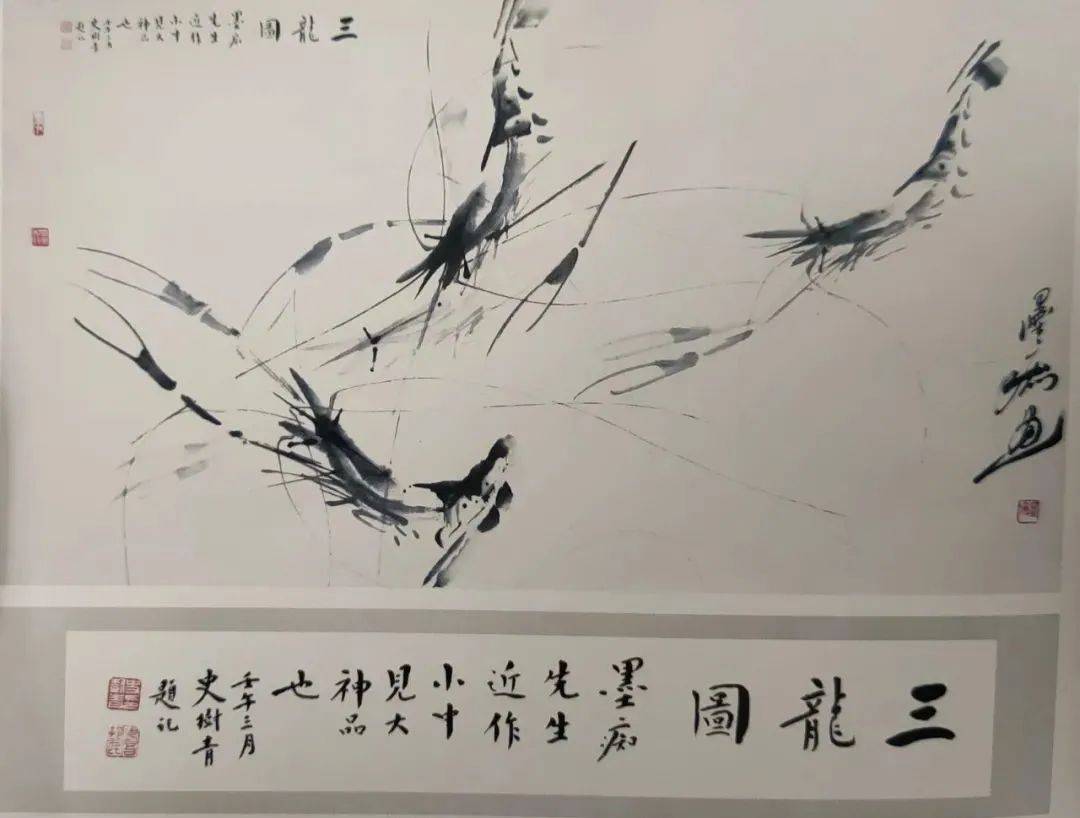 三龍圖
墨痴
先生
近作
小中
見大
神品
也
壬午三月
史樹青
題記
墨痴画
三龍圖
墨痴
先生
近作
小中
見大
神品
也
壬午三月
史樹青
題記